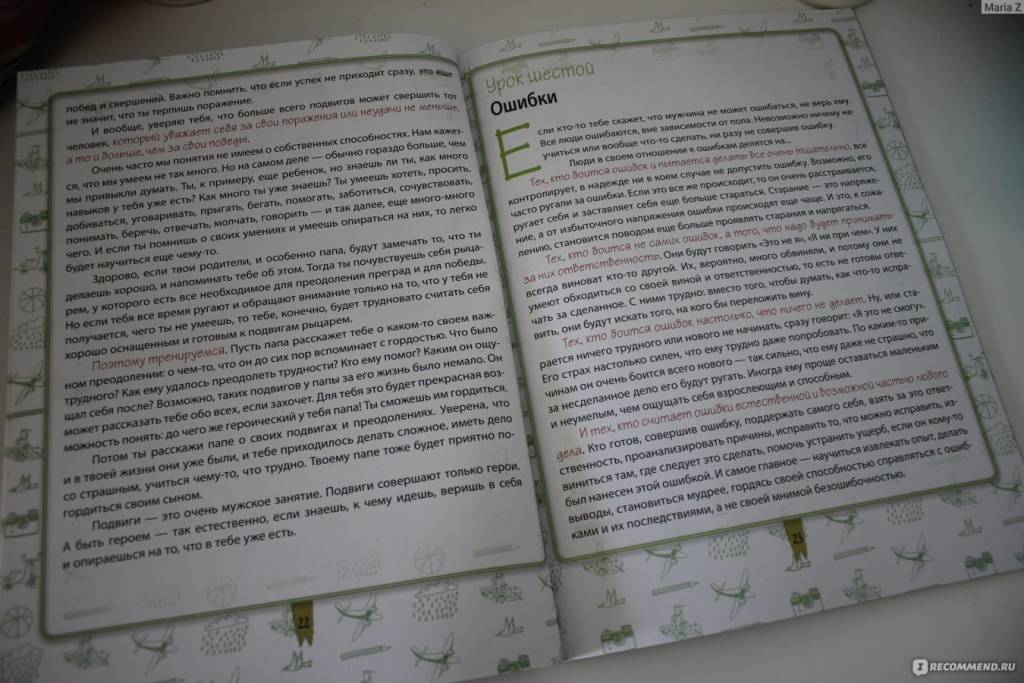 Maria Z
побед и свершений. Важно помнить, что если успех не приходит сразу, это еще
не значит, что ты терпишь поражение.
И вообще, уверяю тебя, что больше всего подвигов может свершить тот
человек, который уважает себя за свои поражения или неудачи не меньше,
а то и больше, чем за свои победы.
Очень часто мы понятия не имеем о собственных способностях. Нам кажет-
ся, что мы умеем не так много. Но на самом деле — обычно гораздо больше, чем
мы привыкли думать. Ты, к примеру, еще ребенок, но знаешь ли ты, как много
навыков у тебя уже есть? Как много ты уже знаешь? Ты умеешь хотеть, просить,
добиваться, уговаривать, прыгать, бегать, помогать, заботиться, сочувствовать,
понимать, беречь, отвечать, молчать, говорить — и так далее, еще много-много
чего. И если ты помнишь о своих умениях и умеешь опираться на них, то легко
будет научиться еще чему-то.
Здорово, если твои родители, и особенно папа, будут замечать то, что ты
делаешь хорошо, и напоминать тебе об этом. Тогда ты почувствуешь себя рыца-
рем, у которого есть все необходимое для преодоления преград и для победы.
Но если тебя все время ругают и обращают внимание только на то, что у тебя не
получается, чего ты не умеешь, то тебе, конечно, будет трудновато считать себя
хорошо оснащенным и готовым к подвигам рыцарем.
Поэтому тренируемся. Пусть папа расскажет тебе о каком-то своем важ-
ном преодолении: о чем-то, что он до сих пор вспоминает с гордостью. Что было
трудного? Как ему удалось преодолеть трудности? Кто ему помог? Каким он ощу-
щал себя после? Возможно, таких подвигов у папы за его жизнь было немало. Он
может рассказать тебе обо всех, если захочет. Для тебя это будет прекрасная воз-
можность понять: до чего же героический у тебя папа! Ты сможешь им гордиться.
Потом ты расскажи папе о своих подвигах и преодолениях. Уверена, что
и в твоей жизни они уже были, и тебе приходилось делать сложное, иметь дело
со страшным, учиться чему-то, что трудно. Твоему папе тоже будет приятно по-
гордиться своим сыном.
Подвиги — это очень мужское занятие. Подвиги совершают только герои.
А быть героем — так естественно, если знаешь, к чему идешь, веришь в себя
и опираешься на то, что в тебе уже есть.
22
Урок шестой
Ошибки
Если кто-то тебе скажет, что мужчина не может ошибаться, не верь ему.
Все люди ошибаются, вне зависимости от пола. Невозможно ничему на-
учиться или вообще что-то сделать, ни разу не совершив ошибку.
Люди в своем отношении к ошибкам делятся на...
Тех, кто боится ошибок и пытается делать все очень тщательно, все
контролирует, в надежде ни в коем случае не допустить ошибку. Возможно, его
часто ругали за ошибки. Если это все же происходит, то он очень расстраивается,
ругает себя и заставляет себя еще больше стараться. Старание — это напряже-
ние, а от избыточного напряжения ошибки происходят еще чаще. И это, к сожа-
лению, становится поводом еще больше проявлять старания и напрягаться.
Тех, кто боится не самих ошибок, а того, что надо будет принимать
за них ответственность. Они будут говорить «Это не я», «Я ни при чем». У них
всегда виноват кто-то другой. Их, вероятно, много обвиняли, и потому они не
умеют обходиться со своей виной и ответственностью, то есть не готовы отве-
чать за сделанное. С ними трудно: вместо того, чтобы думать, как что-то испра-
вить, они будут искать того, на кого бы переложить вину.
Тех, кто боится ошибок настолько, что ничего не делает. Ну, или ста-
рается ничего трудного или нового не начинать, сразу говорит: «Я это не смогу».
Его страх настолько силен, что ему трудно даже попробовать. По каким-то при-
чинам он очень боится всего нового — так сильно, что ему даже не страшно, что
за несделанное дело его будут ругать. Иногда ему проще оставаться маленьким
и неумелым, чем ощущать себя взрослеющим и способным.
И тех, кто считает ошибки естественной и возможной частью любого
дела. Кто готов, совершив ошибку, поддержать самого себя, взять за это ответ-
ственность, проанализировать причины, исправить то, что можно исправить, из-
виниться там, где следует это сделать, помочь устранить ущерб, если он кому-то
был нанесен этой ошибкой. И самое главное — научиться извлекать опыт, делать
выводы, становиться мудрее, гордясь своей способностью справляться с ошиб-
ками и их последствиями, а не своей мнимой безошибочностью.
23
I RECOMMEND.RU